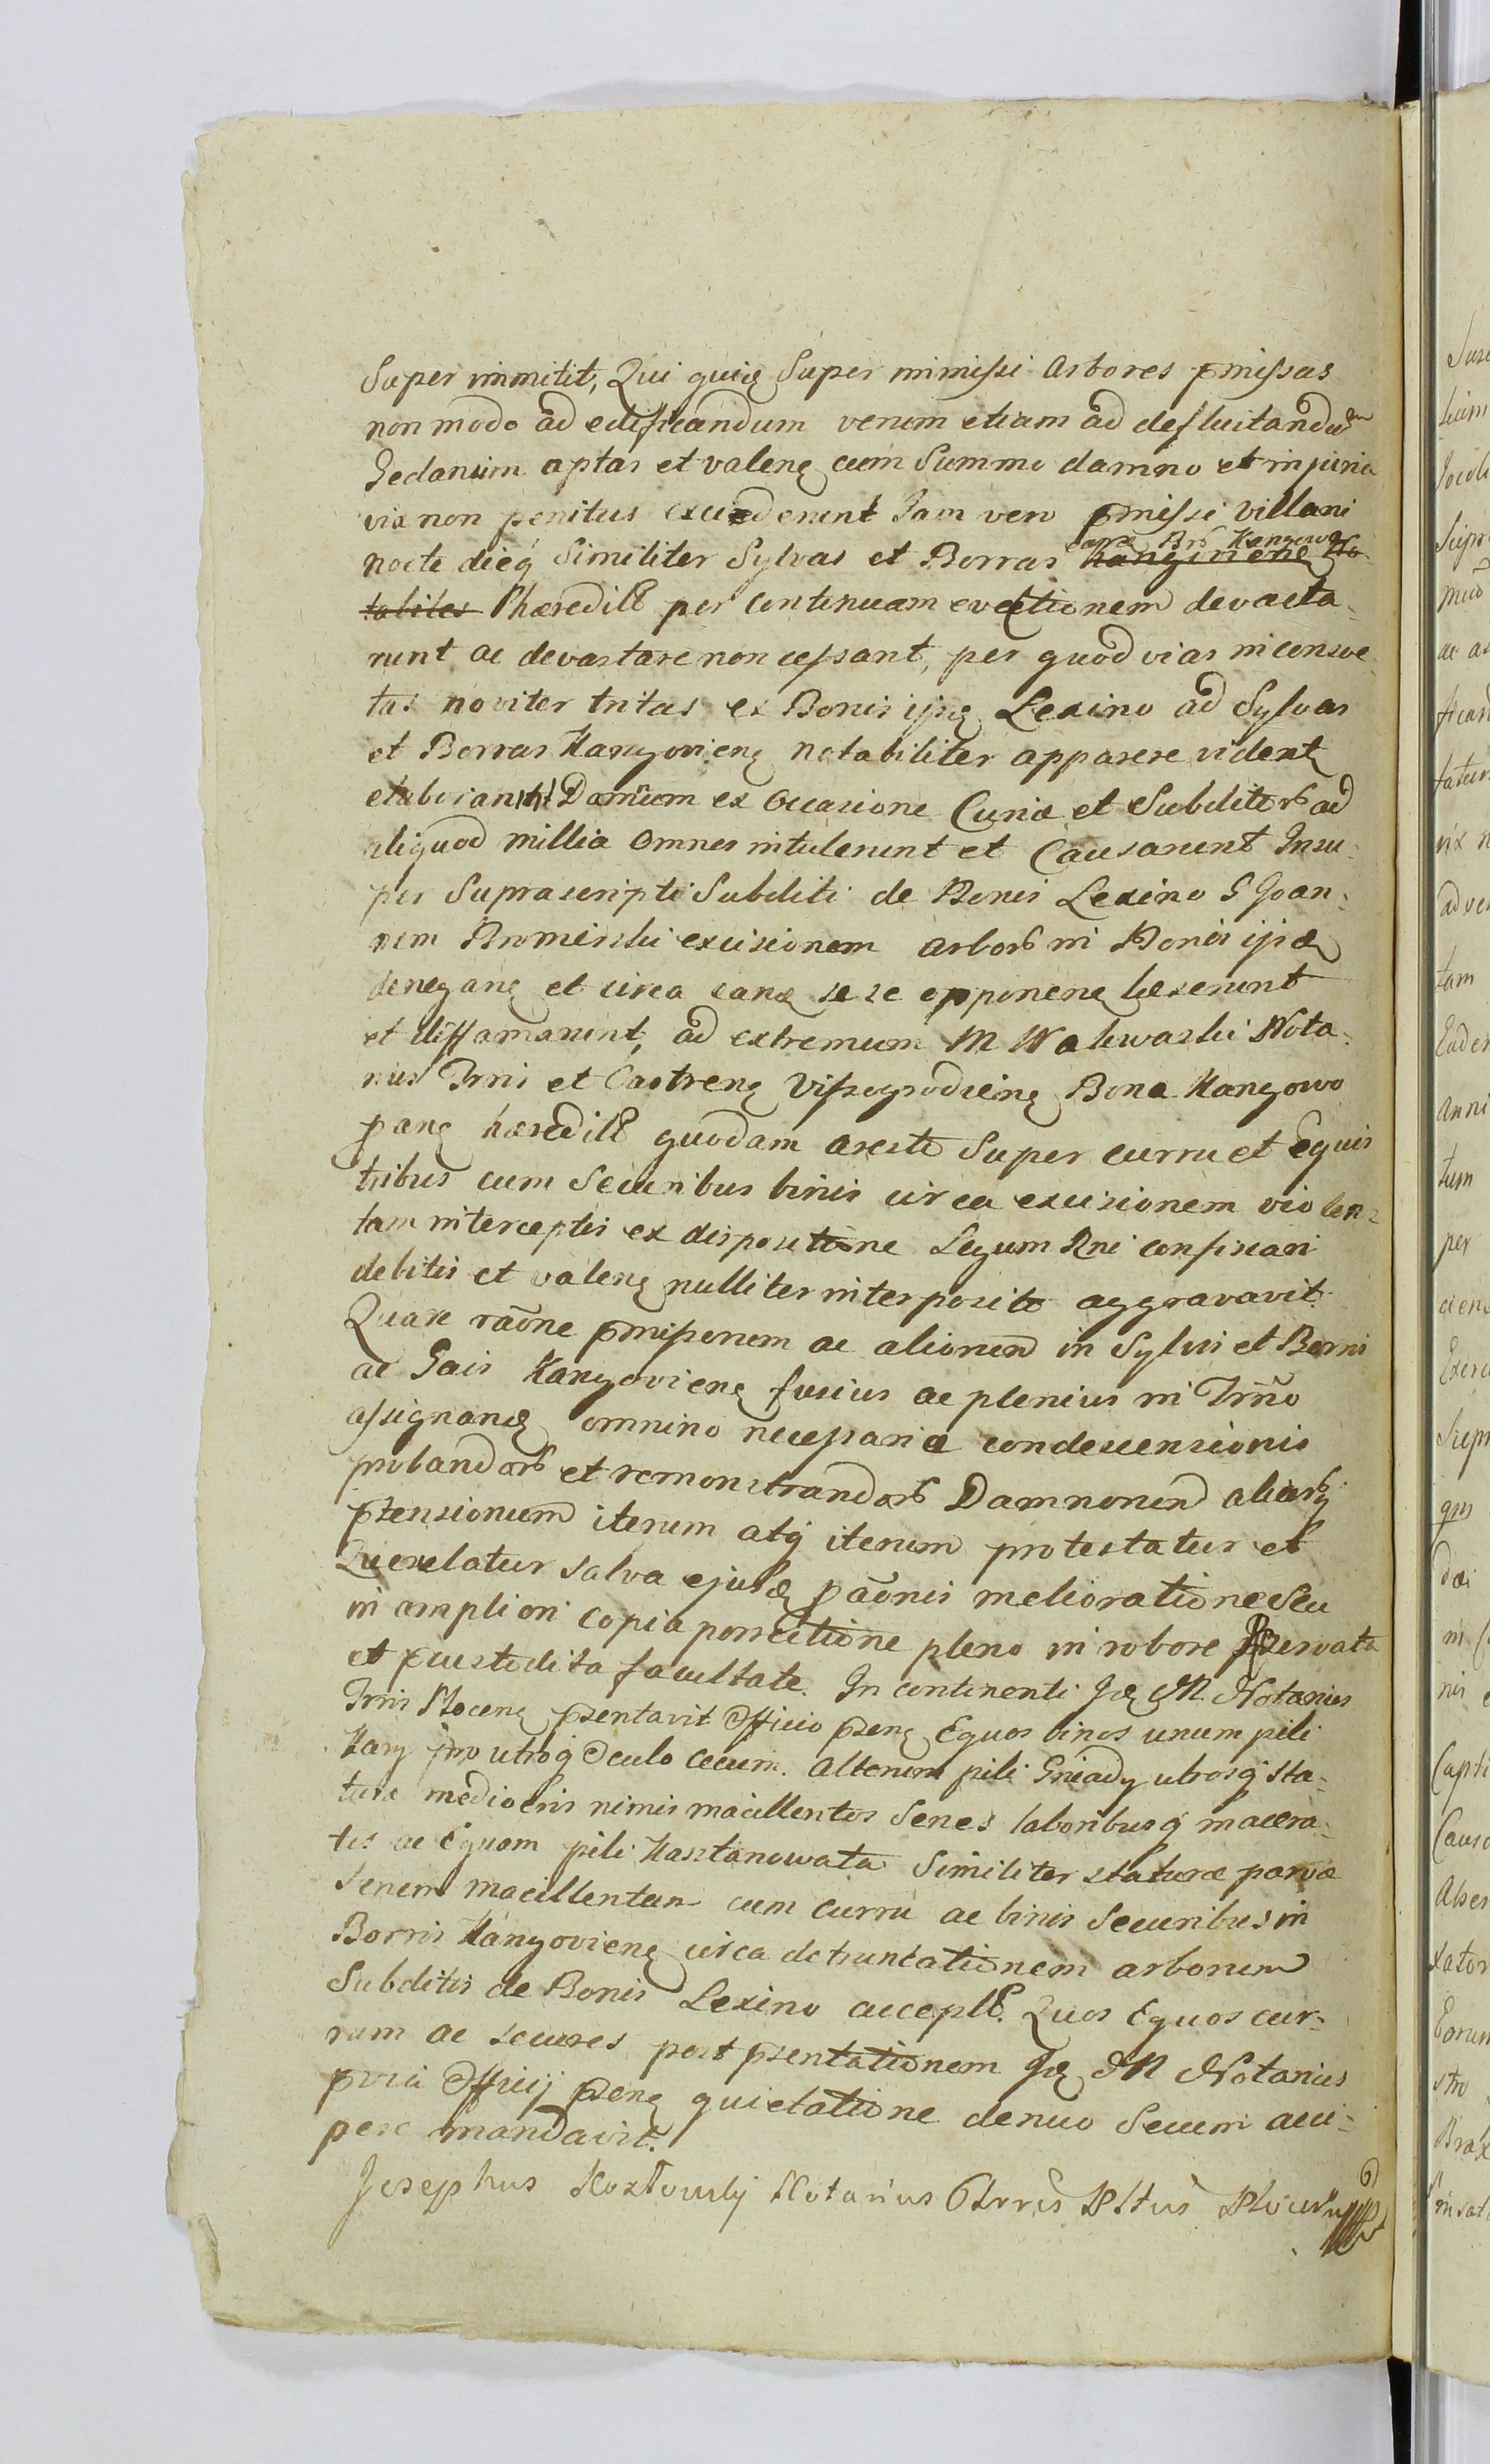 Super immitit, Qui quiq Super immissi Arbores pmissas
non modo ad edificandum verum etiam ad defluitandu
Gedanum aptas et valenę cum Summo damno et injuria
vix non penitus exciderunt Jam vero pmissi Villani
nocte dieq Similiter Sylvas et Borras Kangoviene No
Bns Kangowo
tabiles Phæredill per continuam evectionem devasta-
runt ac devastare non cessant, per quod vias inconsve
tas noviter tritas ex Bonis ijsę Lexino ad Sylvas
et Borras Kangovienę notabiliter apparere vident
Damnum ex Occasione Curiæ et Subditor ad
aliquod millia omnes intulerunt et Causarunt Insu-
per Suprascripti Subditi de Bonis Lexino G Joan-
nem excisionem arbor in Bonis ijsd
denegan et circa eand se se opponenę læserunt
et diffamarunt, ad extremum M Wakwaski Nota-
rius Trris et Castrenę Vissogrodienę Bona Kangowo
panę hæredill quodam aresto Super curru et Equis
tribus cum Securibus binis circa excisionem violen-
tam interceptis ex dispositione Legum Rni confiscari
debitis et valenę nulliter interposito aggravavit.
Quare raõne pmissorum ac aliorum in Sylvis et Borris
ac Gais Kangovienę fusius ac plenius in Trmo
assignandę omnino necessariæ condescensionis
probandor et remonstrandor Damnorum aliarq
ptensionum iterum atq iterum protestatur et
Querelatur salva ejusd paõnis melioratione seu
in ampliori copia porrectione pleno in robore pservata
et pcustodita facultate. In continenti Jdę M. Notarius
Trris Plocenę psentavit Officio psenę Equos binos unum pili
Kary pro utroq Oculo cecum. Alterum pili Gniady utrosq sta-
turæ mediocris nimis macillentos Senes laboribusq macera-
tos ac Equam pili Kasztanowata Similiter staturæ parvæ
Senem macillentam cum curru ac binis Securibus in
Borris Kangovienę circa detruncationem arborum
Subditis de Bonis Lexino accepll. Quos Equos cur-
rum ac secures post psentationem Jdę M Notarius
pvia Officij psenę quietatione denuo Secum acci-
pere mandavit.
Josephus Kozłowskj Notarius Trris Pltus